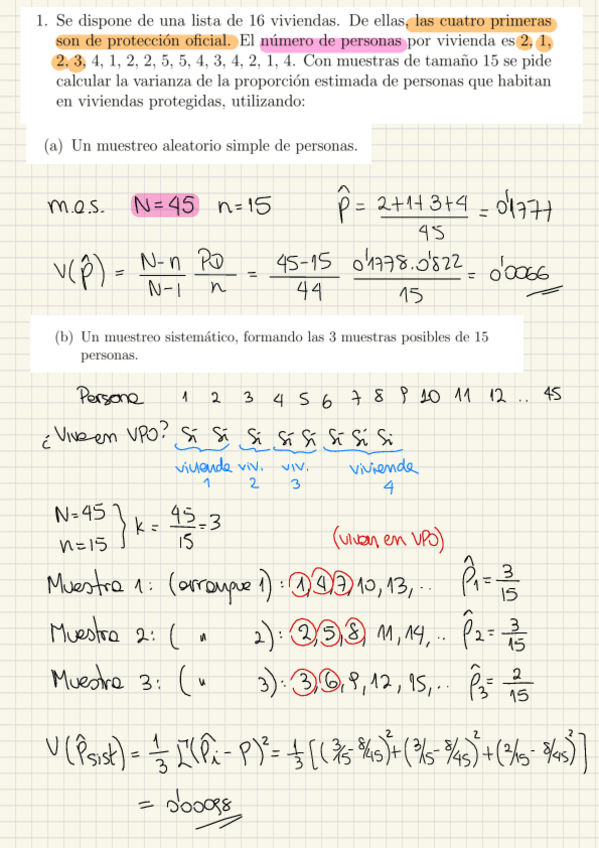 1. Se dispone de una lista de 16 viviendas. De ellas, las cuatro primeras
son de protección oficial. El número de personas por vivienda es 2, 1,
2, 3, 4, 1, 2, 2, 5, 5, 4, 3, 4, 2, 1, 4. Con muestras de tamaño 15 se pide
calcular la varianza de la proporción estimada de personas que habitan
en viviendas protegidas, utilizando:
(a) Un muestreo aleatorio simple de personas.
m.a.s. N=45 n=15 p̂ = (2+1+3+4)/45 = 0'1777
V(p̂) = (N-n)/(N-1) PQ/n = (45-15)/44 (0'1778·0'822)/15 = 0'0066
(b) Un muestreo sistemático, formando las 3 muestras posibles de 15
personas.
Persona 1 2 3 4 5 6 7 8 9 10 11 12 .. 45
¿Vive en VPO? Sí Sí Sí Sí Sí Sí Sí Sí
vivienda viv. viv. vivienda
1 2 3 4
N=45
n=15 } k = 45/15 = 3
(viven en VPO)
Muestra 1: (arranque 1): 1, 4, 7, 10, 13, .. p̂1 = 3/15
Muestra 2: ( " 2): 2, 5, 8, 11, 14, .. p̂2 = 3/15
Muestra 3: ( " 3): 3, 6, 9, 12, 15, .. p̂3 = 2/15
V(p̂sist) = 1/3 Σ(p̂i - p)² = 1/3 [(3/15 - 8/45)² + (3/15 - 8/45)² + (2/15 - 8/45)²]
= 0'00098